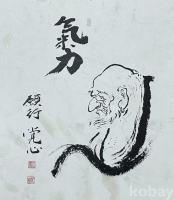 氣力
顧行 覚心
kobay